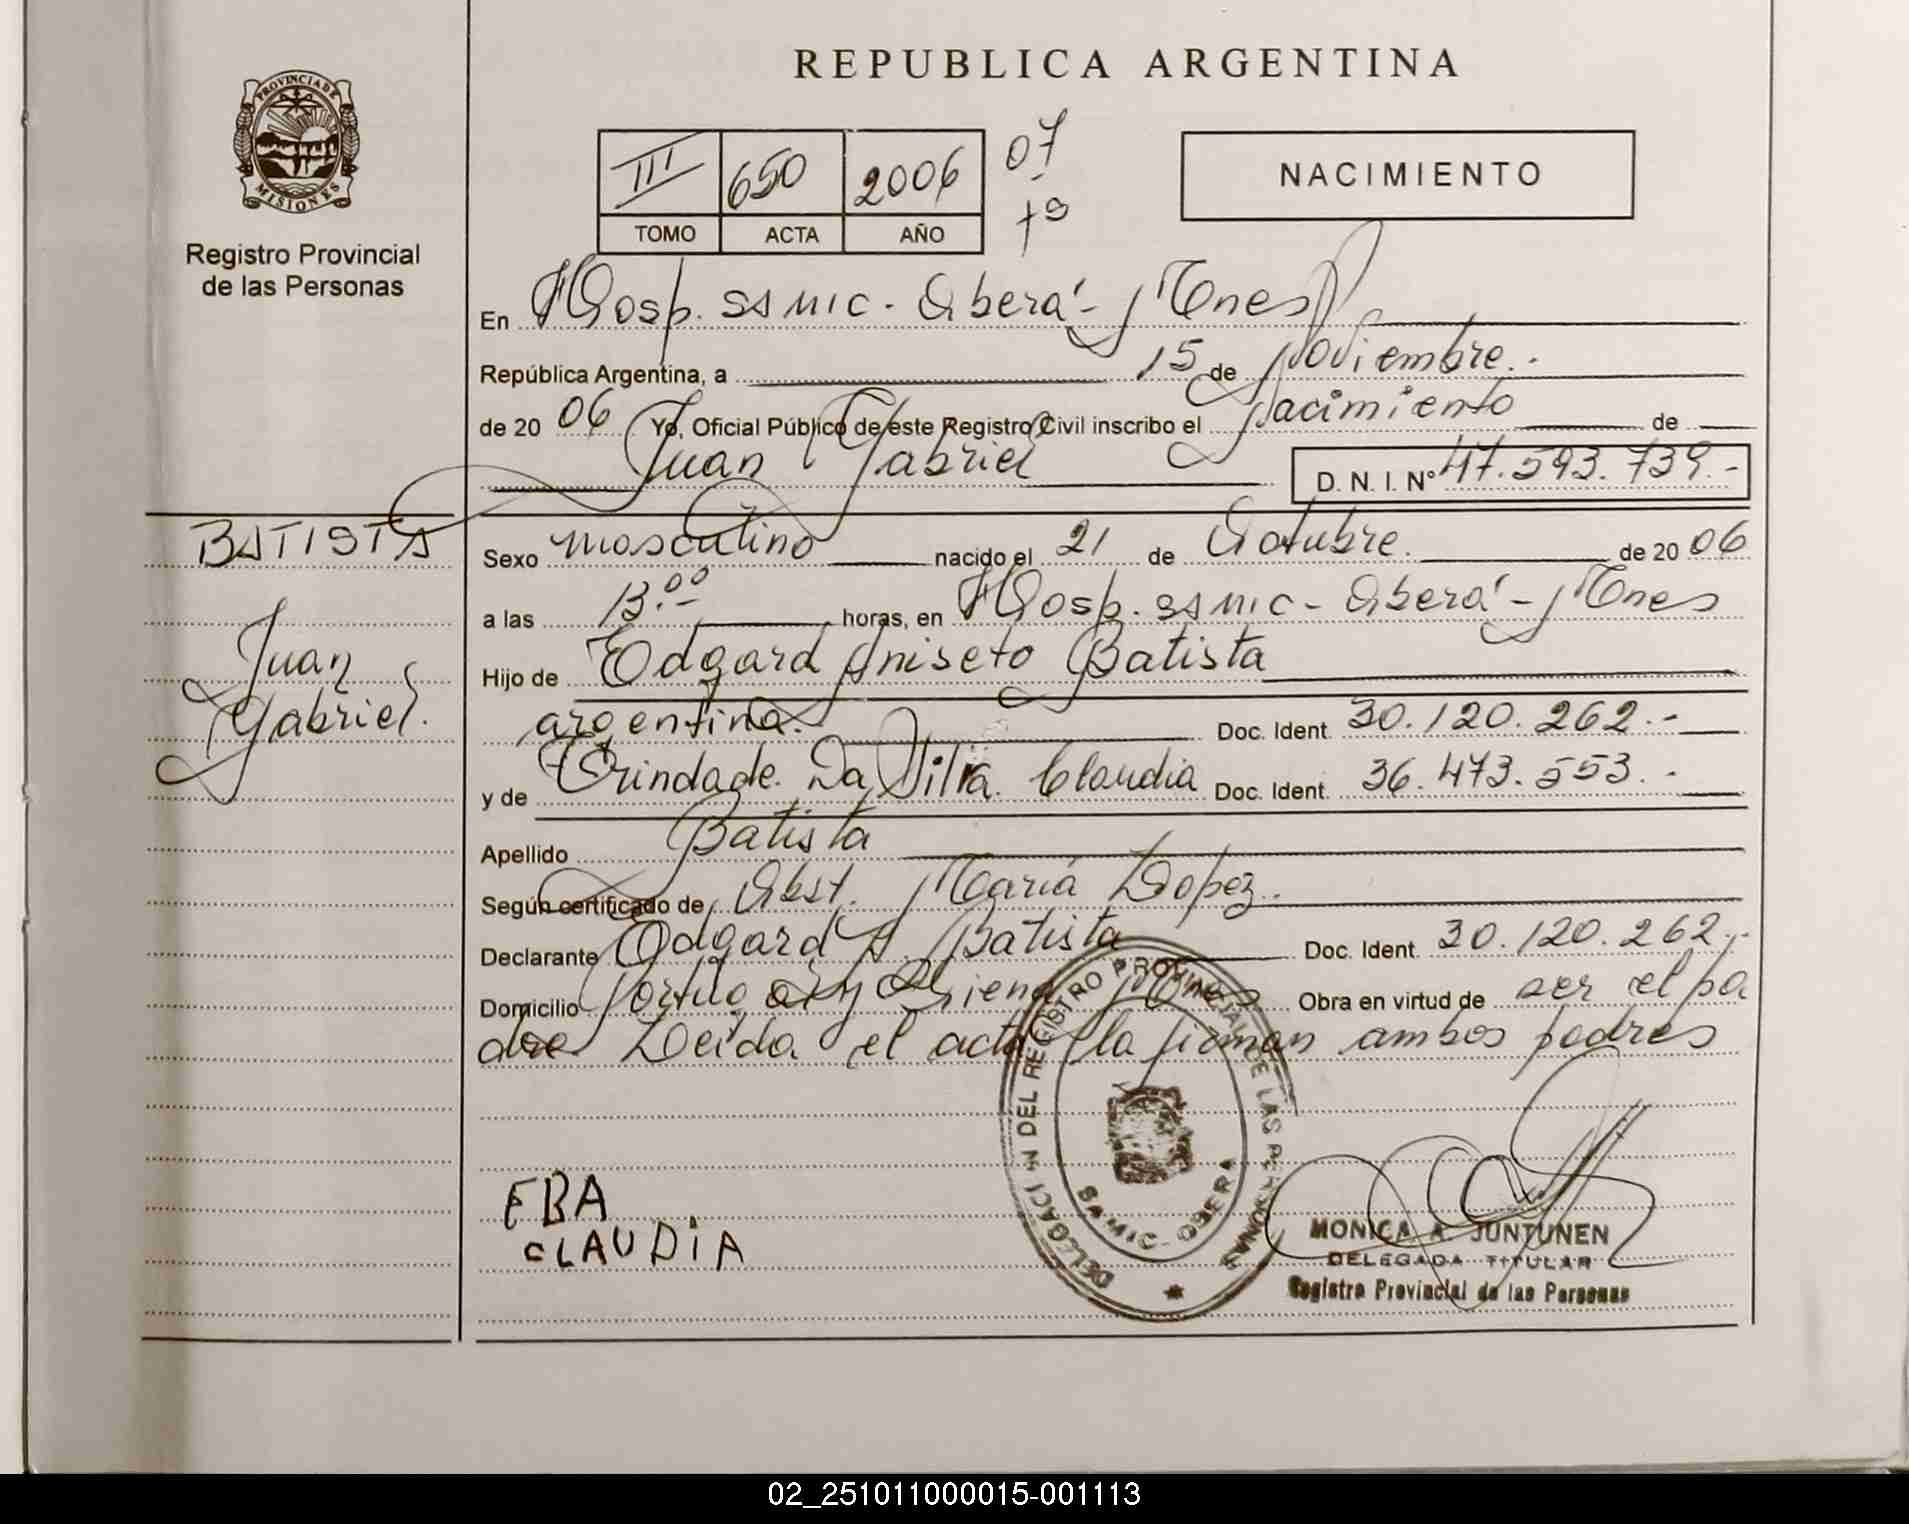 REPUBLICA ARGENTINA
PROVINCIA DE
MISIONES
Registro Provincial
de las Personas
III 650 2006 07
TOMO ACTA AÑO
NACIMIENTO
En Hosp. SAMIC - Oberá - Mnes
República Argentina, a 15 de Noviembre.-
de 20 06 Yo, Oficial Público de este Registro Civil inscribo el Nacimiento de
Juan Gabriel D. N. I. Nº 47.593.739.-
BATISTA
Juan
Gabriel.
Sexo masculino nacido el 21 de Octubre. de 20 06
a las 13.00 horas, en Hosp. SAMIC - Oberá - Mnes
Hijo de Edgard Aniseto Batista
argentina. Doc. Ident. 30.120.262.-
y de Trindade Da Silva Claudia Doc. Ident. 36.473.553.-
Apellido Batista
Según certificado de Obst. María Lopez.
Declarante Edgard A Batista Doc. Ident. 30.120.262.-
Domicilio Mnes Obra en virtud de ser el pa
dre Leída el acta la firman ambos padres
EBA
CLAUDIA
DELEGACI N DEL REGISTRO PROVINCIAL DE LAS PERSONAS
SAMIC - OBERA
MONICA A. JUNTUNEN
DELEGADA TITULAR
Registro Provincial de las Personas
02_251011000015-001113